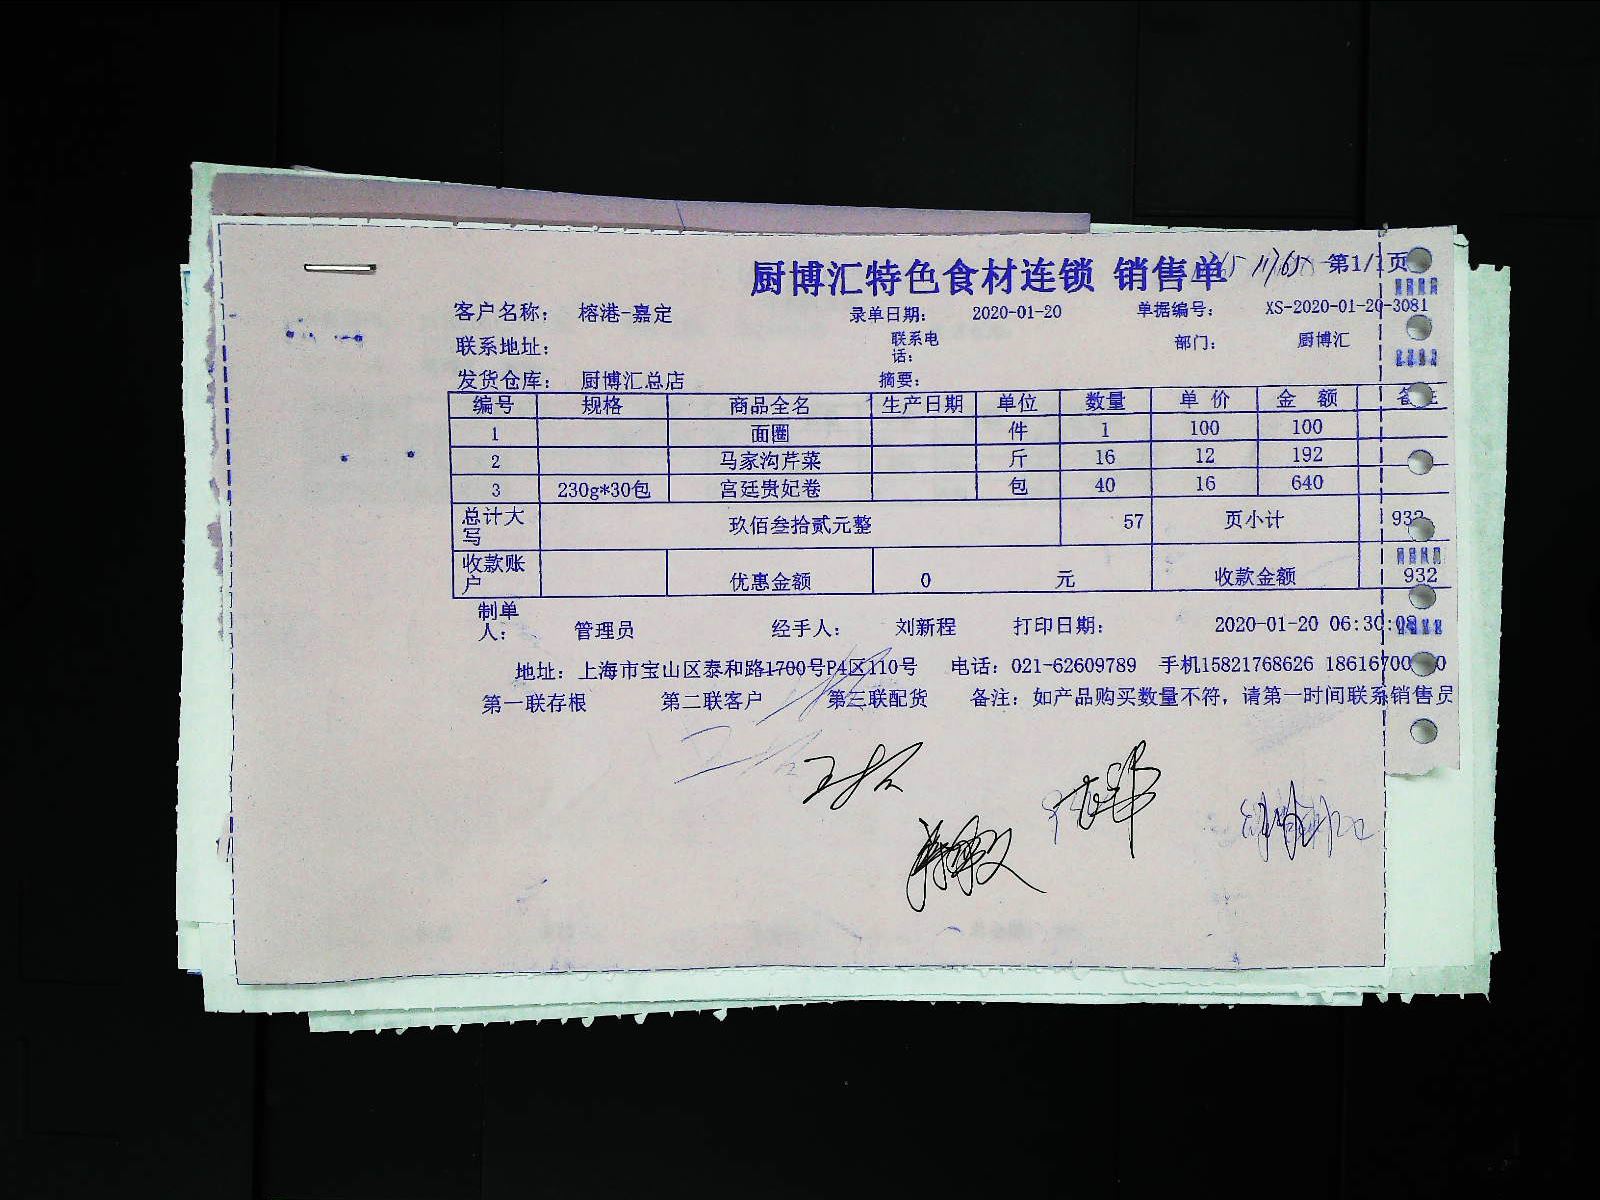 厨博汇特色食材连锁 销售单 第1/1页
客户名称： 榕港-嘉定 录单日期： 2020-01-20 单据编号： XS-2020-01-20-3081
联系地址： 联系电话： 部门： 厨博汇
发货仓库： 厨博汇总店 摘要：
编号 规格 商品全名 生产日期 单位 数量 单 价 金 额 备注
1 面圈 件 1 100 100
2 马家沟芹菜 斤 16 12 192
3 230g*30包 宫廷贵妃卷 包 40 16 640
总计大写 玖佰叁拾贰元整 57 页小计 932
收款账户 优惠金额 0 元 收款金额 932
制单人： 管理员 经手人： 刘新程 打印日期： 2020-01-20 06:30:08
地址：上海市宝山区泰和路1700号P4区110号 电话：021-62609789 手机15821768626
第一联存根 第二联客户 第三联配货 备注：如产品购买数量不符，请第一时间联系销售员